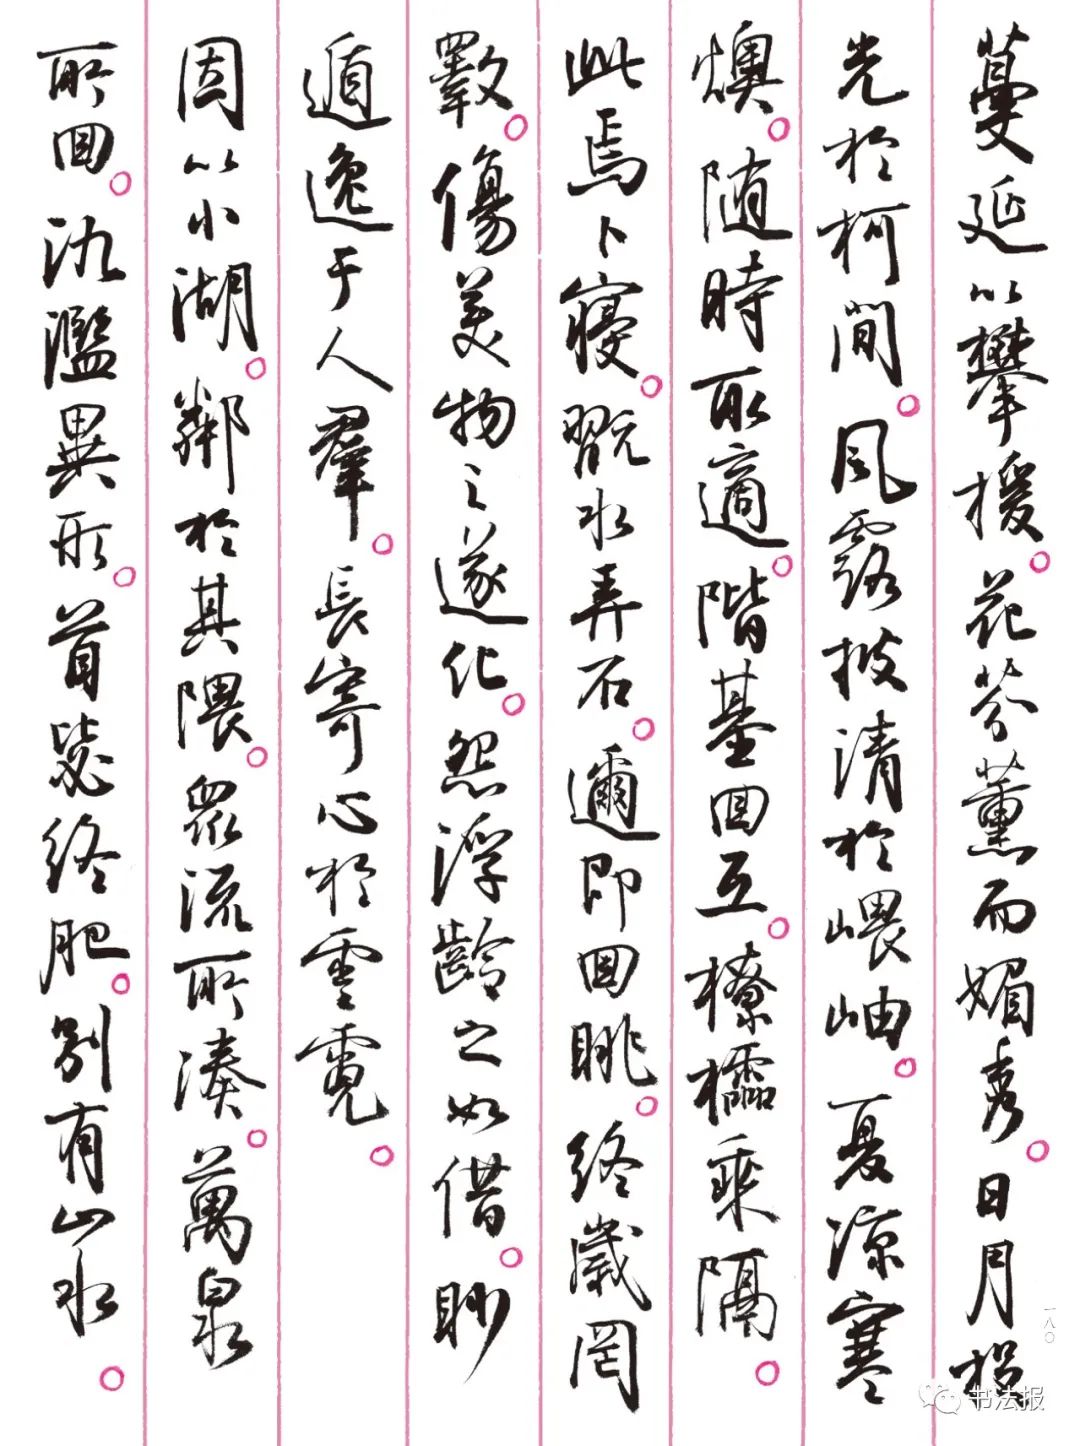 蔓延以攀援。花芬薰而媚秀。日月投
光於柯間。風露披清於嵔岫。夏凉寒
燠。随時取適。階基回互。橑櫺乘隔。
此焉卜寝。翫水弄石。邇即回眺。終歲罔
斁。傷美物之遂化。怨浮齡之如借。眇
遁逸于人羣。長寄心於雲霓。
因以小湖。鄰於其隈。眾流所湊。萬泉
所回。氿濫異形。首毖終肥。别有山水。
一八〇
书法报